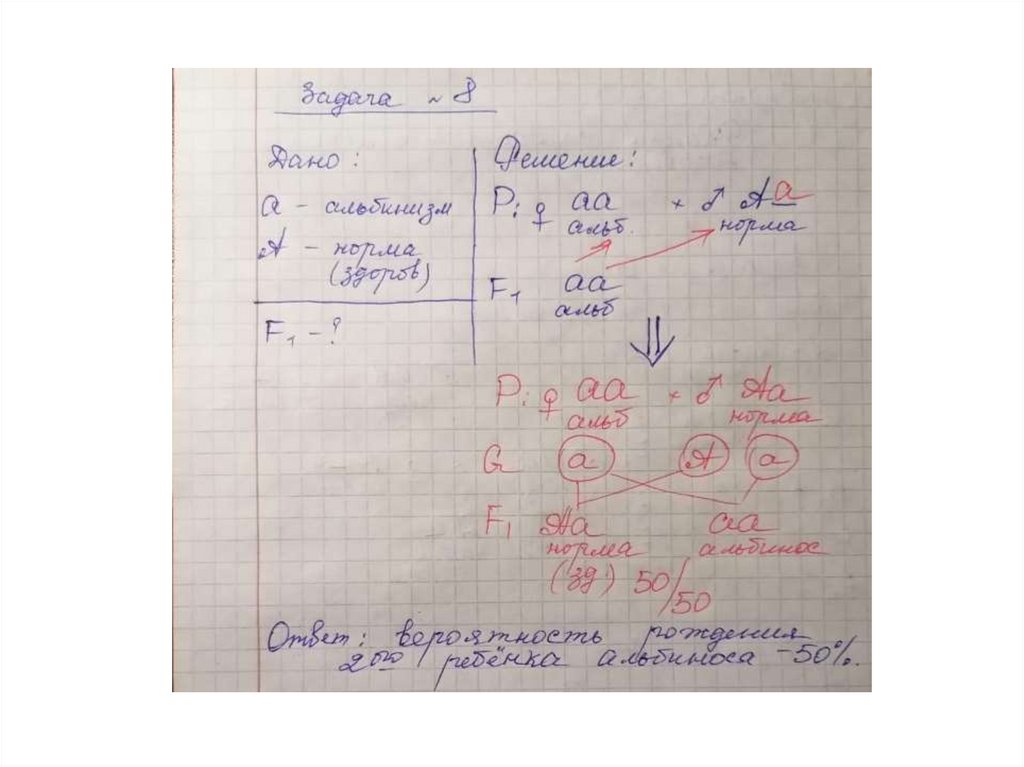 Задача ~ 8
Дано:
а - альбинизм
А - норма
(здоров)
F₁ - ?
Решение:
P: ♀ аа × ♂ Аа
альб. норма
F₁ аа
альб
P: ♀ аа × ♂ Аа
альб норма
G а А а
F₁ Аа аа
норма альбинос
(зд) 50/50
Ответ: вероятность рождения
2ого ребёнка альбиноса - 50%.